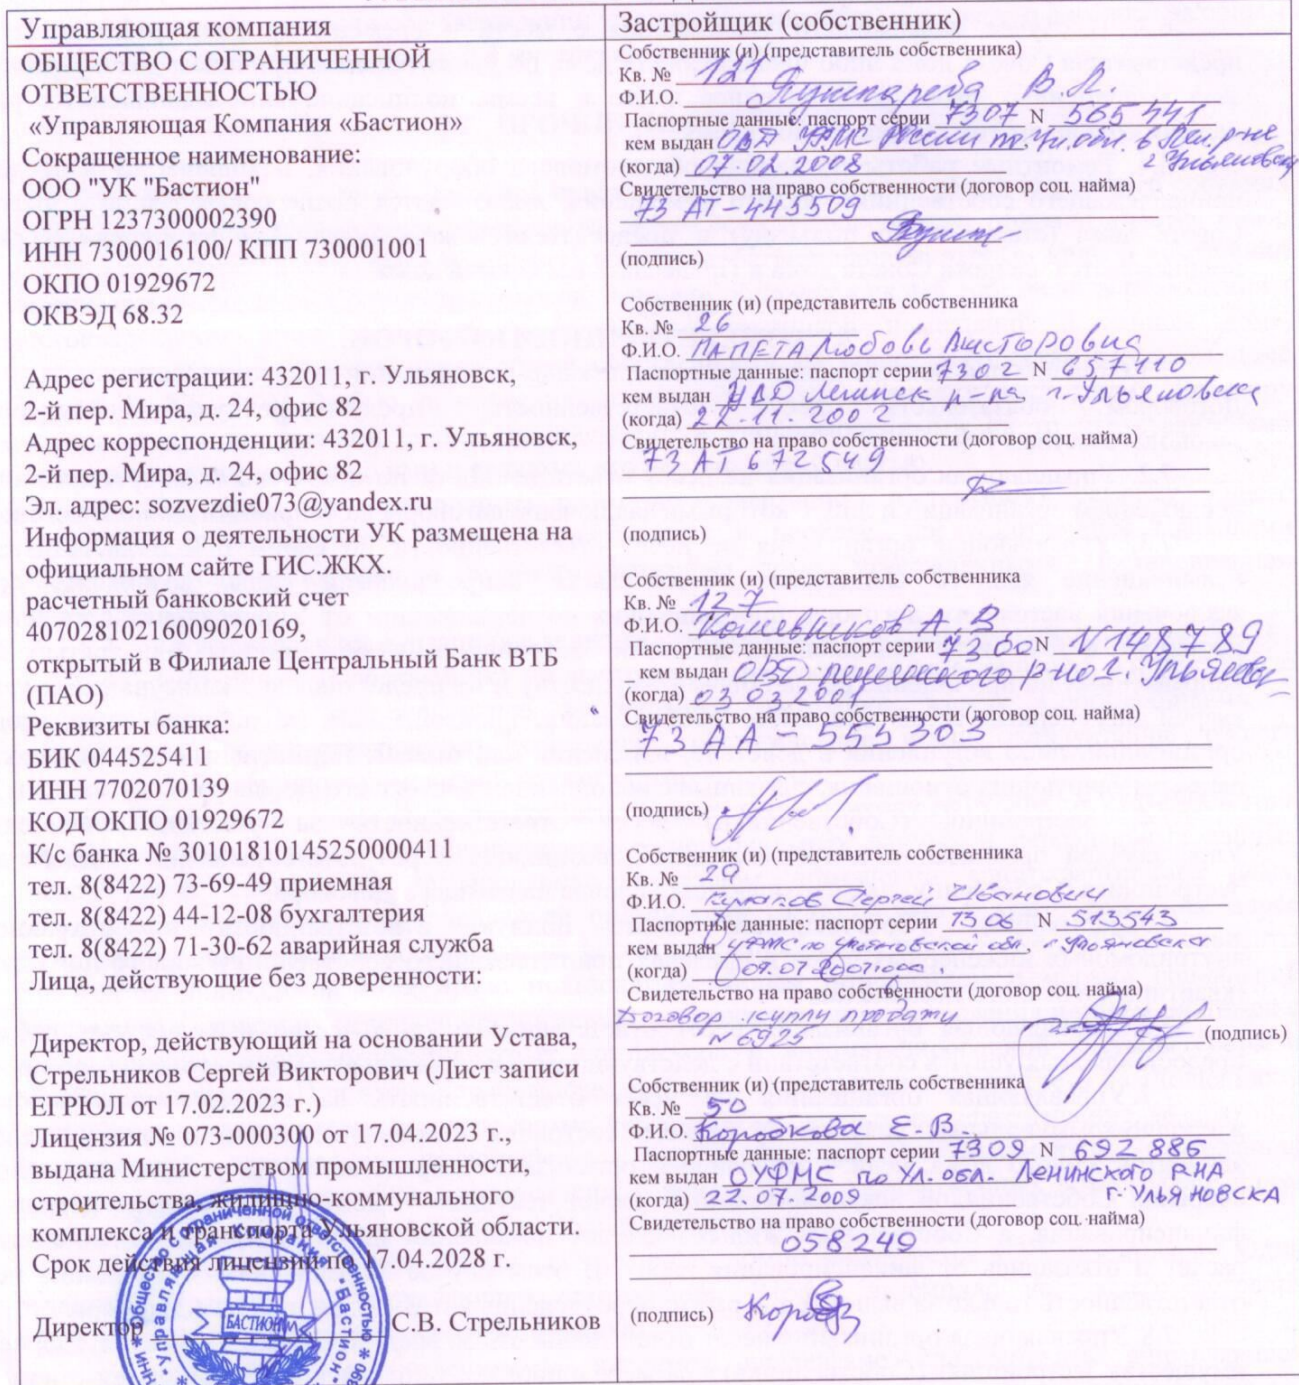 Управляющая компания
ОБЩЕСТВО С ОГРАНИЧЕННОЙ
ОТВЕТСТВЕННОСТЬЮ
«Управляющая Компания «Бастион»
Сокращенное наименование:
ООО "УК "Бастион"
ОГРН 1237300002390
ИНН 7300016100/ КПП 730001001
ОКПО 01929672
ОКВЭД 68.32
Адрес регистрации: 432011, г. Ульяновск,
2-й пер. Мира, д. 24, офис 82
Адрес корреспонденции: 432011, г. Ульяновск,
2-й пер. Мира, д. 24, офис 82
Эл. адрес: sozvezdie073@yandex.ru
Информация о деятельности УК размещена на
официальном сайте ГИС.ЖКХ.
расчетный банковский счет
40702810216009020169,
открытый в Филиале Центральный Банк ВТБ
(ПАО)
Реквизиты банка:
БИК 044525411
ИНН 7702070139
КОД ОКПО 01929672
К/с банка № 30101810145250000411
тел. 8(8422) 73-69-49 приемная
тел. 8(8422) 44-12-08 бухгалтерия
тел. 8(8422) 71-30-62 аварийная служба
Лица, действующие без доверенности:
Директор, действующий на основании Устава,
Стрельников Сергей Викторович (Лист записи
ЕГРЮЛ от 17.02.2023 г.)
Лицензия № 073-000300 от 17.04.2023 г.,
выдана Министерством промышленности,
строительства, жилищно-коммунального
комплекса и транспорта Ульяновской области.
Срок действия лицензии по 17.04.2028 г.
Директор С.В. Стрельников
БАСТИОН
Застройщик (собственник)
Собственник (и) (представитель собственника)
Кв. № 121
Ф.И.О. Пушкарева В.
Паспортные данные: паспорт серии 7307 N 565441
кем выдан УФМС России
г. Ульяновск
(когда) 07.02.2008
Свидетельство на право собственности (договор соц. найма)
73 АТ-445509
(подпись)
Собственник (и) (представитель собственника
Кв. № 26
Ф.И.О. ПАПЕТА Любовь Викторовна
Паспортные данные: паспорт серии 7302 N 657410
кем выдан УВД Ленинск р-на г. Ульяновска
(когда) 22.11.2002
Свидетельство на право собственности (договор соц. найма)
73 АТ 672549
(подпись)
Собственник (и) (представитель собственника
Кв. № 127
Ф.И.О. Кошевников А.В
Паспортные данные: паспорт серии 7300 N N148789
кем выдан ОВД Ленинского р-на г. Ульяновск
(когда) 03 03 2001
Свидетельство на право собственности (договор соц. найма)
73 АА - 555303
(подпись)
Собственник (и) (представитель собственника
Кв. № 29
Ф.И.О. Сергей Иванович
Паспортные данные: паспорт серии 7306 N 513543
кем выдан УФМС по Ульяновской обл. г. Ульяновска
(когда) 09.07.2007
Свидетельство на право собственности (договор соц. найма)
Договор купли продажи
N 6925 (подпись)
Собственник (и) (представитель собственника
Кв. № 50
Ф.И.О. Коробкова Е.В.
Паспортные данные: паспорт серии 7309 N 692886
кем выдан ОУФМС по Ул. обл. Ленинского Р-НА
г. Ульяновска
(когда) 22.07.2009
Свидетельство на право собственности (договор соц. найма)
058249
(подпись)